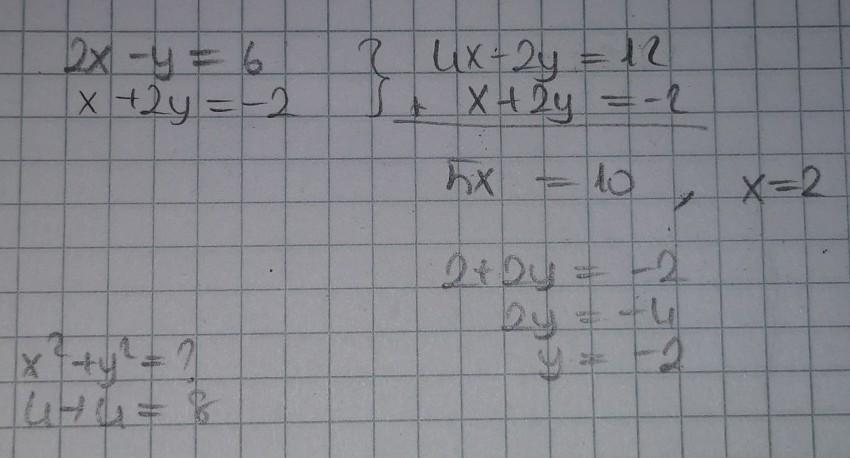 2x - y = 6 } 4x - 2y = 12
x + 2y = -2 + x + 2y = -2
5x = 10 , x = 2
2 + 2y = -2
2y = -4
y = -2
x² + y² = ?
4 + 4 = 8